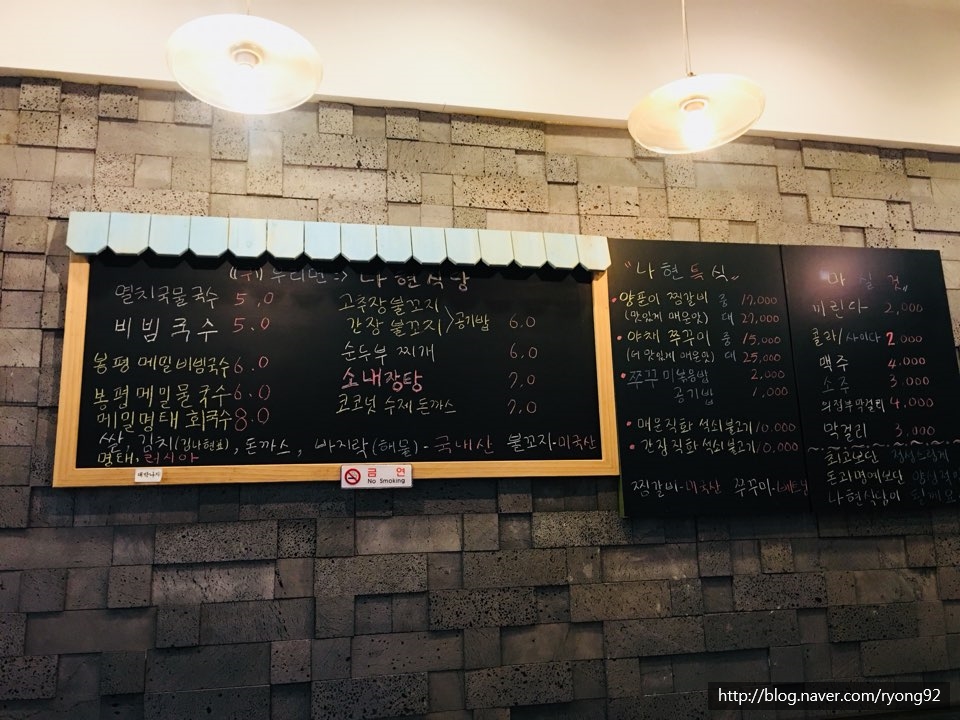 누리면 :-> 나현식당
멸치국물국수 5.0
비빔국수 5.0
봉평메밀비빔국수 6.0
봉평메밀물국수 6.0
메밀명태회국수 8.0
고추장불꼬지
간장불꼬지 >공기밥 6.0
순두부찌개 6.0
소내장탕 7.0
코코넛수제돈까스 7.0
쌀, 김치(김나현표), 돈까스, 바지락(해물)-국내산 불꼬지-미국산
명태,러시아
금연
No Smoking
"나현특식"
양푼이 찜갈비 중 17,000
(맛있게 매운맛) 대 27,000
야채 쭈꾸미 중 15,000
(더 맛있게 매운맛) 대 25,000
쭈꾸미볶음밥 2,000
공기밥 1,000
매운직화 석쇠불고기 10.000
간장직화 석쇠불고기 10.000
찜갈비-미국산 쭈꾸미-베트남
마실것
미린다 2,000
콜라/사이다 2.000
맥주 4.000
소주 3.000
의정부막걸리 4,000
막걸리 3,000
최고보단 정성스럽게
돈과명예보단
나현식당이 함께
http://blog.naver.com/ryong92